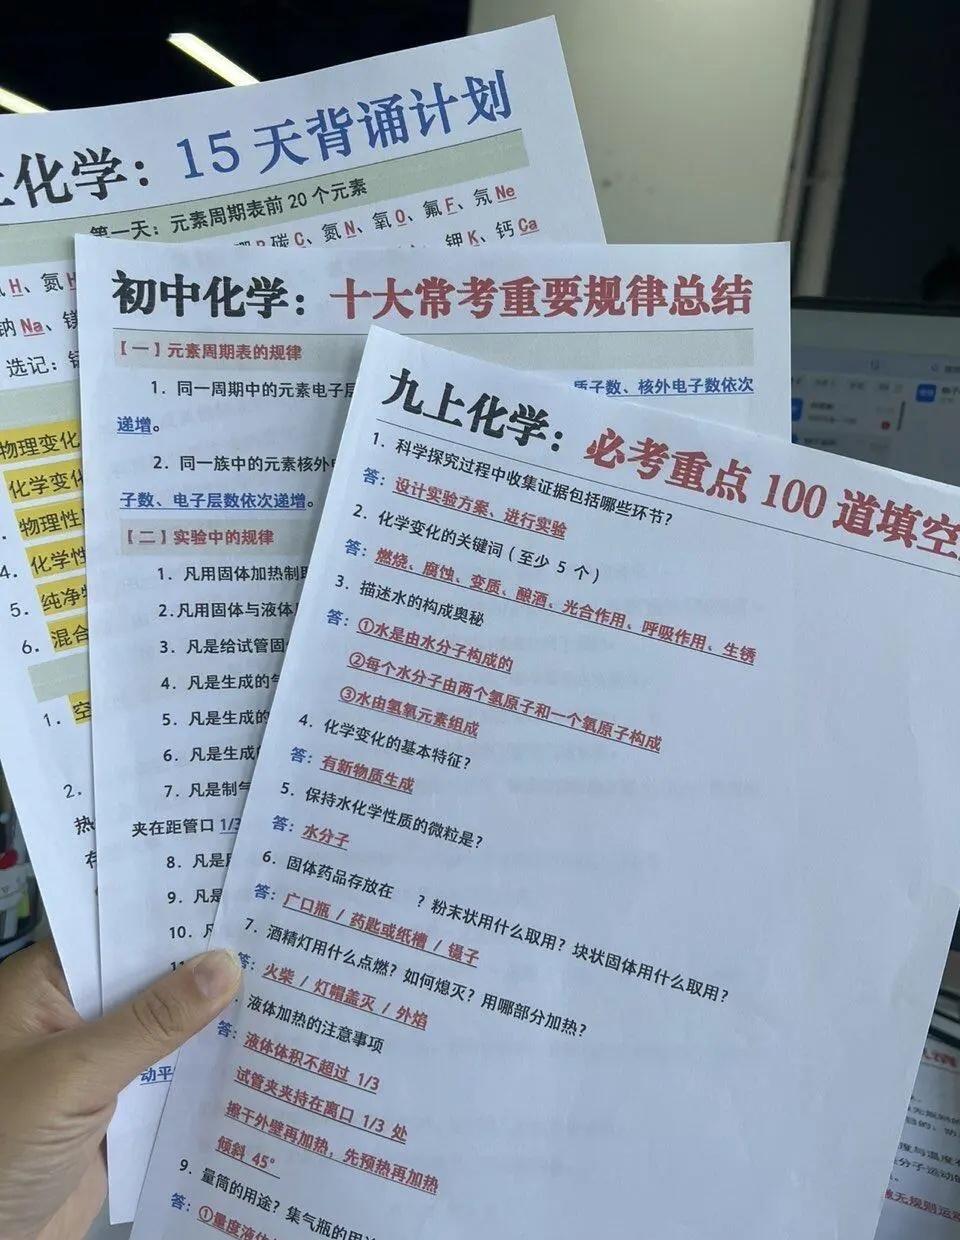 上化学：15天背诵计划
第一天：元素周期表前20个元素
碳C、氮N、氧O、氟F、氖Ne
H、氦
钾K、钙Ca
钠Na、镁
选记：
物理变化
化学变化
物理性
4. 化学性
5. 纯净物
6. 混合
1. 空
2.
热
存
初中化学：十大常考重要规律总结
【一】元素周期表的规律
1. 同一周期中的元素电子层
质子数、核外电子数依次
递增。
2. 同一族中的元素核外电
子数、电子层数依次递增。
【二】实验中的规律
1. 凡用固体加热制取
2.凡用固体与液体
3. 凡是给试管固
4. 凡是生成的气
5. 凡是生成的
6. 凡是生成
7. 凡是制气
夹在距管口 1/3
8. 凡是
9. 凡是
10. 凡
11
动平
九上化学：必考重点 100 道填空
1. 科学探究过程中收集证据包括哪些环节？
答：设计实验方案、进行实验
2. 化学变化的关键词（至少 5 个）
答：燃烧、腐蚀、变质、酿酒、光合作用、呼吸作用、生锈
3. 描述水的构成奥秘
答：①水是由水分子构成的
②每个水分子由两个氢原子和一个氧原子构成
③水由氢氧元素组成
4. 化学变化的基本特征？
答：有新物质生成
5. 保持水化学性质的微粒是？
答：水分子
6. 固体药品存放在 ？粉末状用什么取用？块状固体用什么取用？
答：广口瓶 / 药匙或纸槽 / 镊子
7. 酒精灯用什么点燃？如何熄灭？用哪部分加热？
答：火柴 / 灯帽盖灭 / 外焰
液体加热的注意事项
答：液体体积不超过 1/3
试管夹夹持在离口 1/3 处
擦干外壁再加热，先预热再加热
倾斜 45°
9. 量筒的用途？集气瓶的用途
答：①量度液体